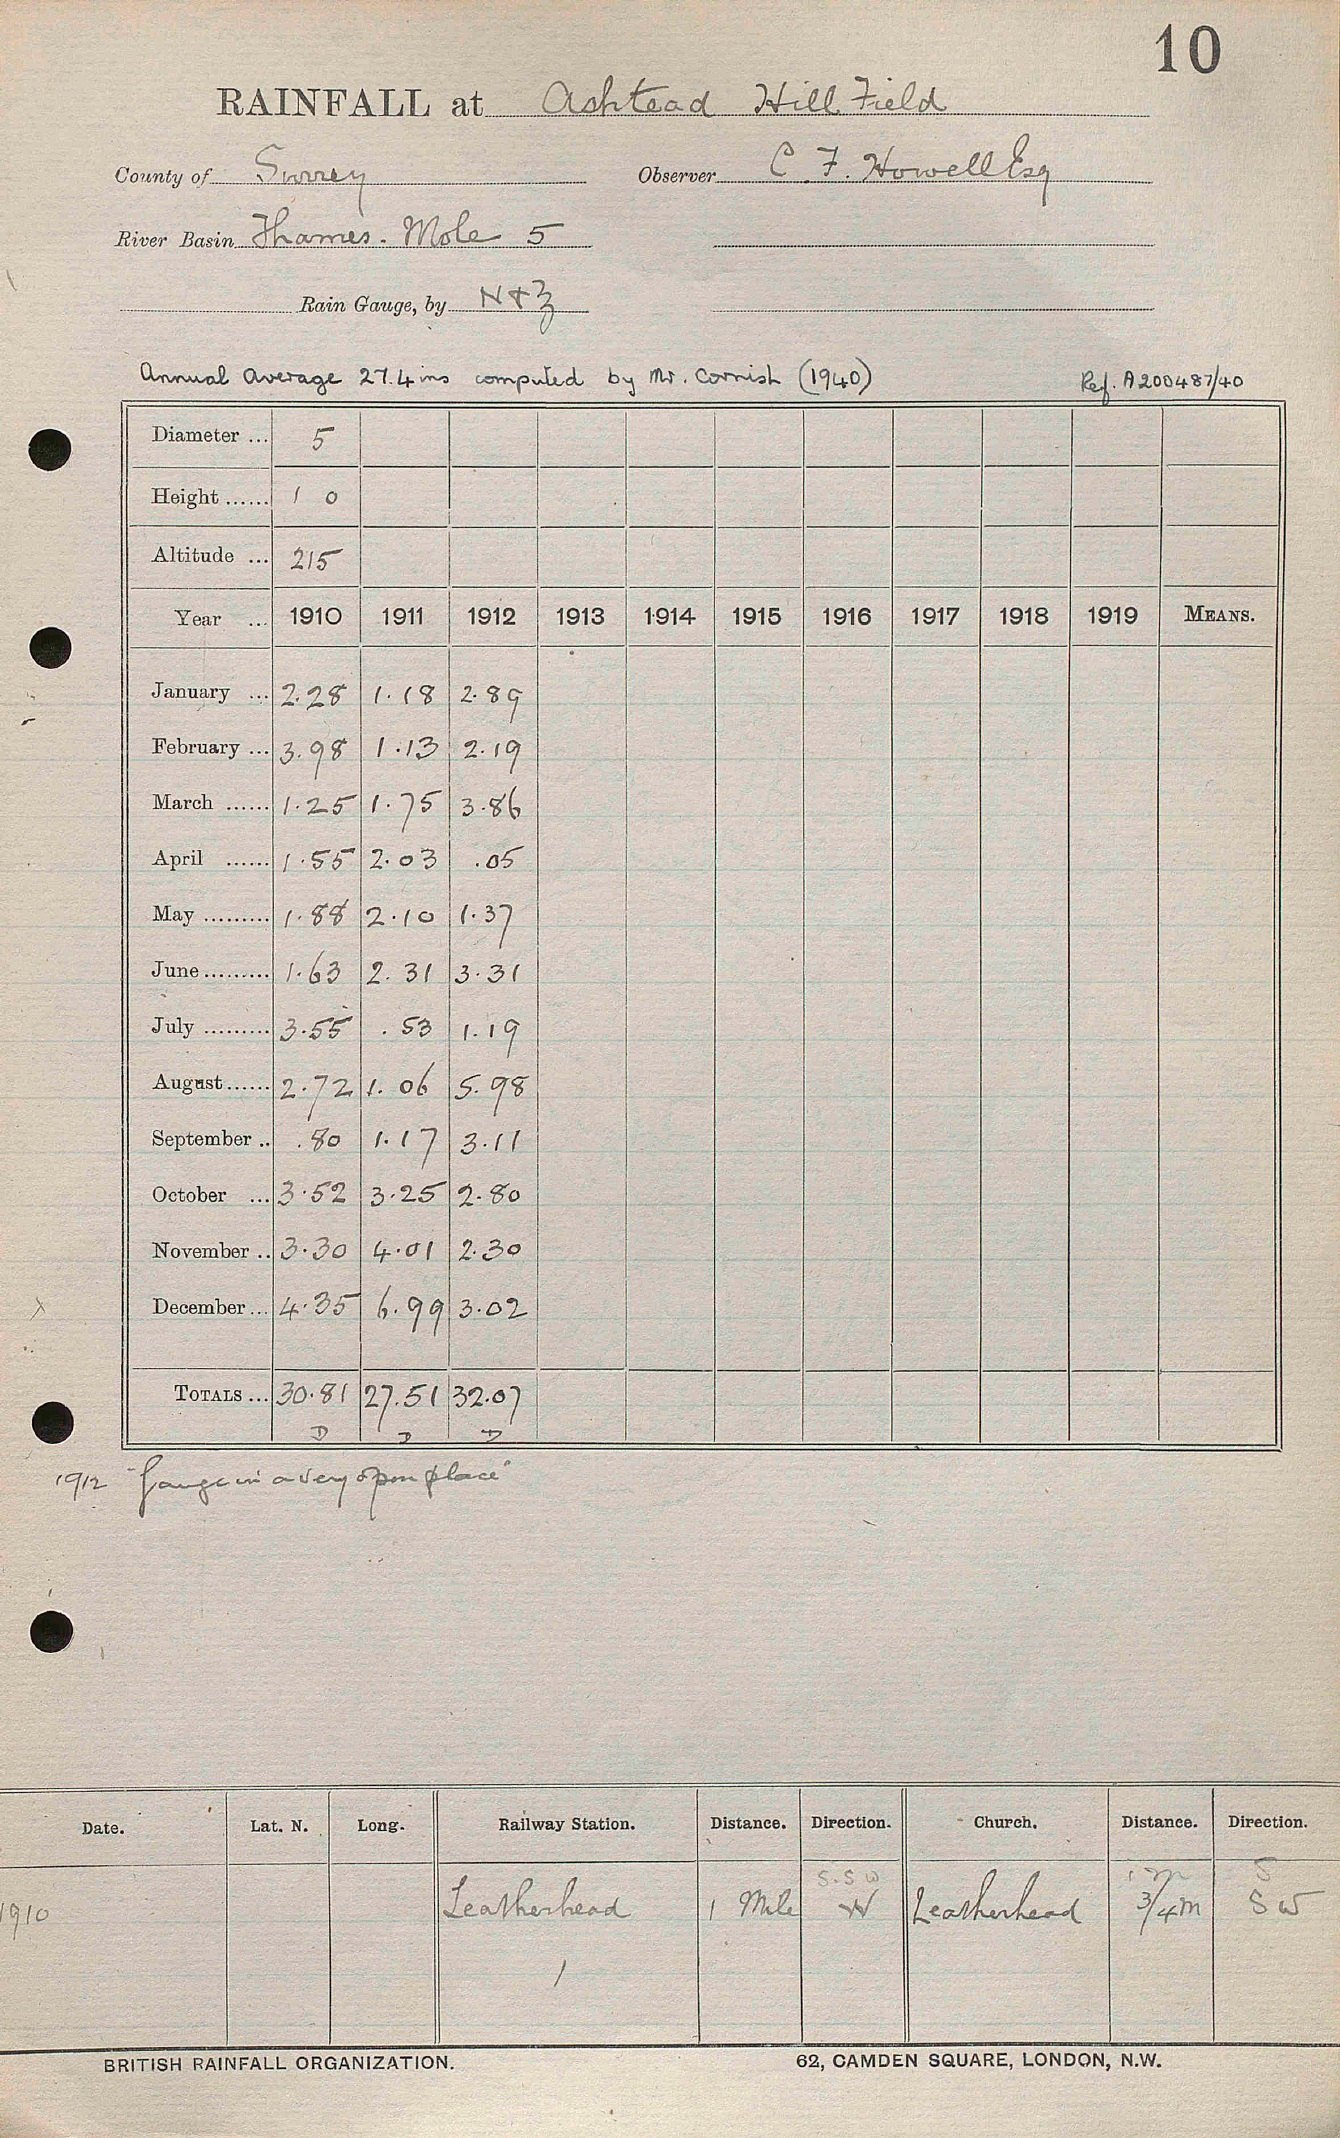 10
RAINFALL at Ashtead Hill Field
County of Surrey Observer C. F. Howell Esq
River Basin Thames. Mole 5
Rain Gauge, by N+Z
Annual Average 27.4 ins computed by Mr. Cornish (1940) Ref. A200487/40
Diameter ... 5
Height ...... 1 0
Altitude ... 215
Year ... 1910 1911 1912 1913 1914 1915 1916 1917 1918 1919 MEANS.
January ... 2.28 1.18 2.89
February ... 3.98 1.13 2.19
March ...... 1.25 1.75 3.86
April ...... 1.55 2.03 .05
May ......... 1.88 2.10 1.37
June ......... 1.63 2.31 3.31
July ......... 3.55 .53 1.19
August ...... 2.72 1.06 5.98
September .. .80 1.17 3.11
October ... 3.52 3.25 2.80
November .. 3.30 4.01 2.30
December ... 4.35 6.99 3.02
TOTALS ... 30.81 27.51 32.07
D D D
1912 "Gauge in a very open place"
Date. Lat. N. Long. Railway Station. Distance. Direction. Church. Distance. Direction.
S.S W 1 m S
1910 Leatherhead 1 Mile W Leatherhead 3/4 m S W
BRITISH RAINFALL ORGANIZATION. 62, CAMDEN SQUARE, LONDON, N.W.